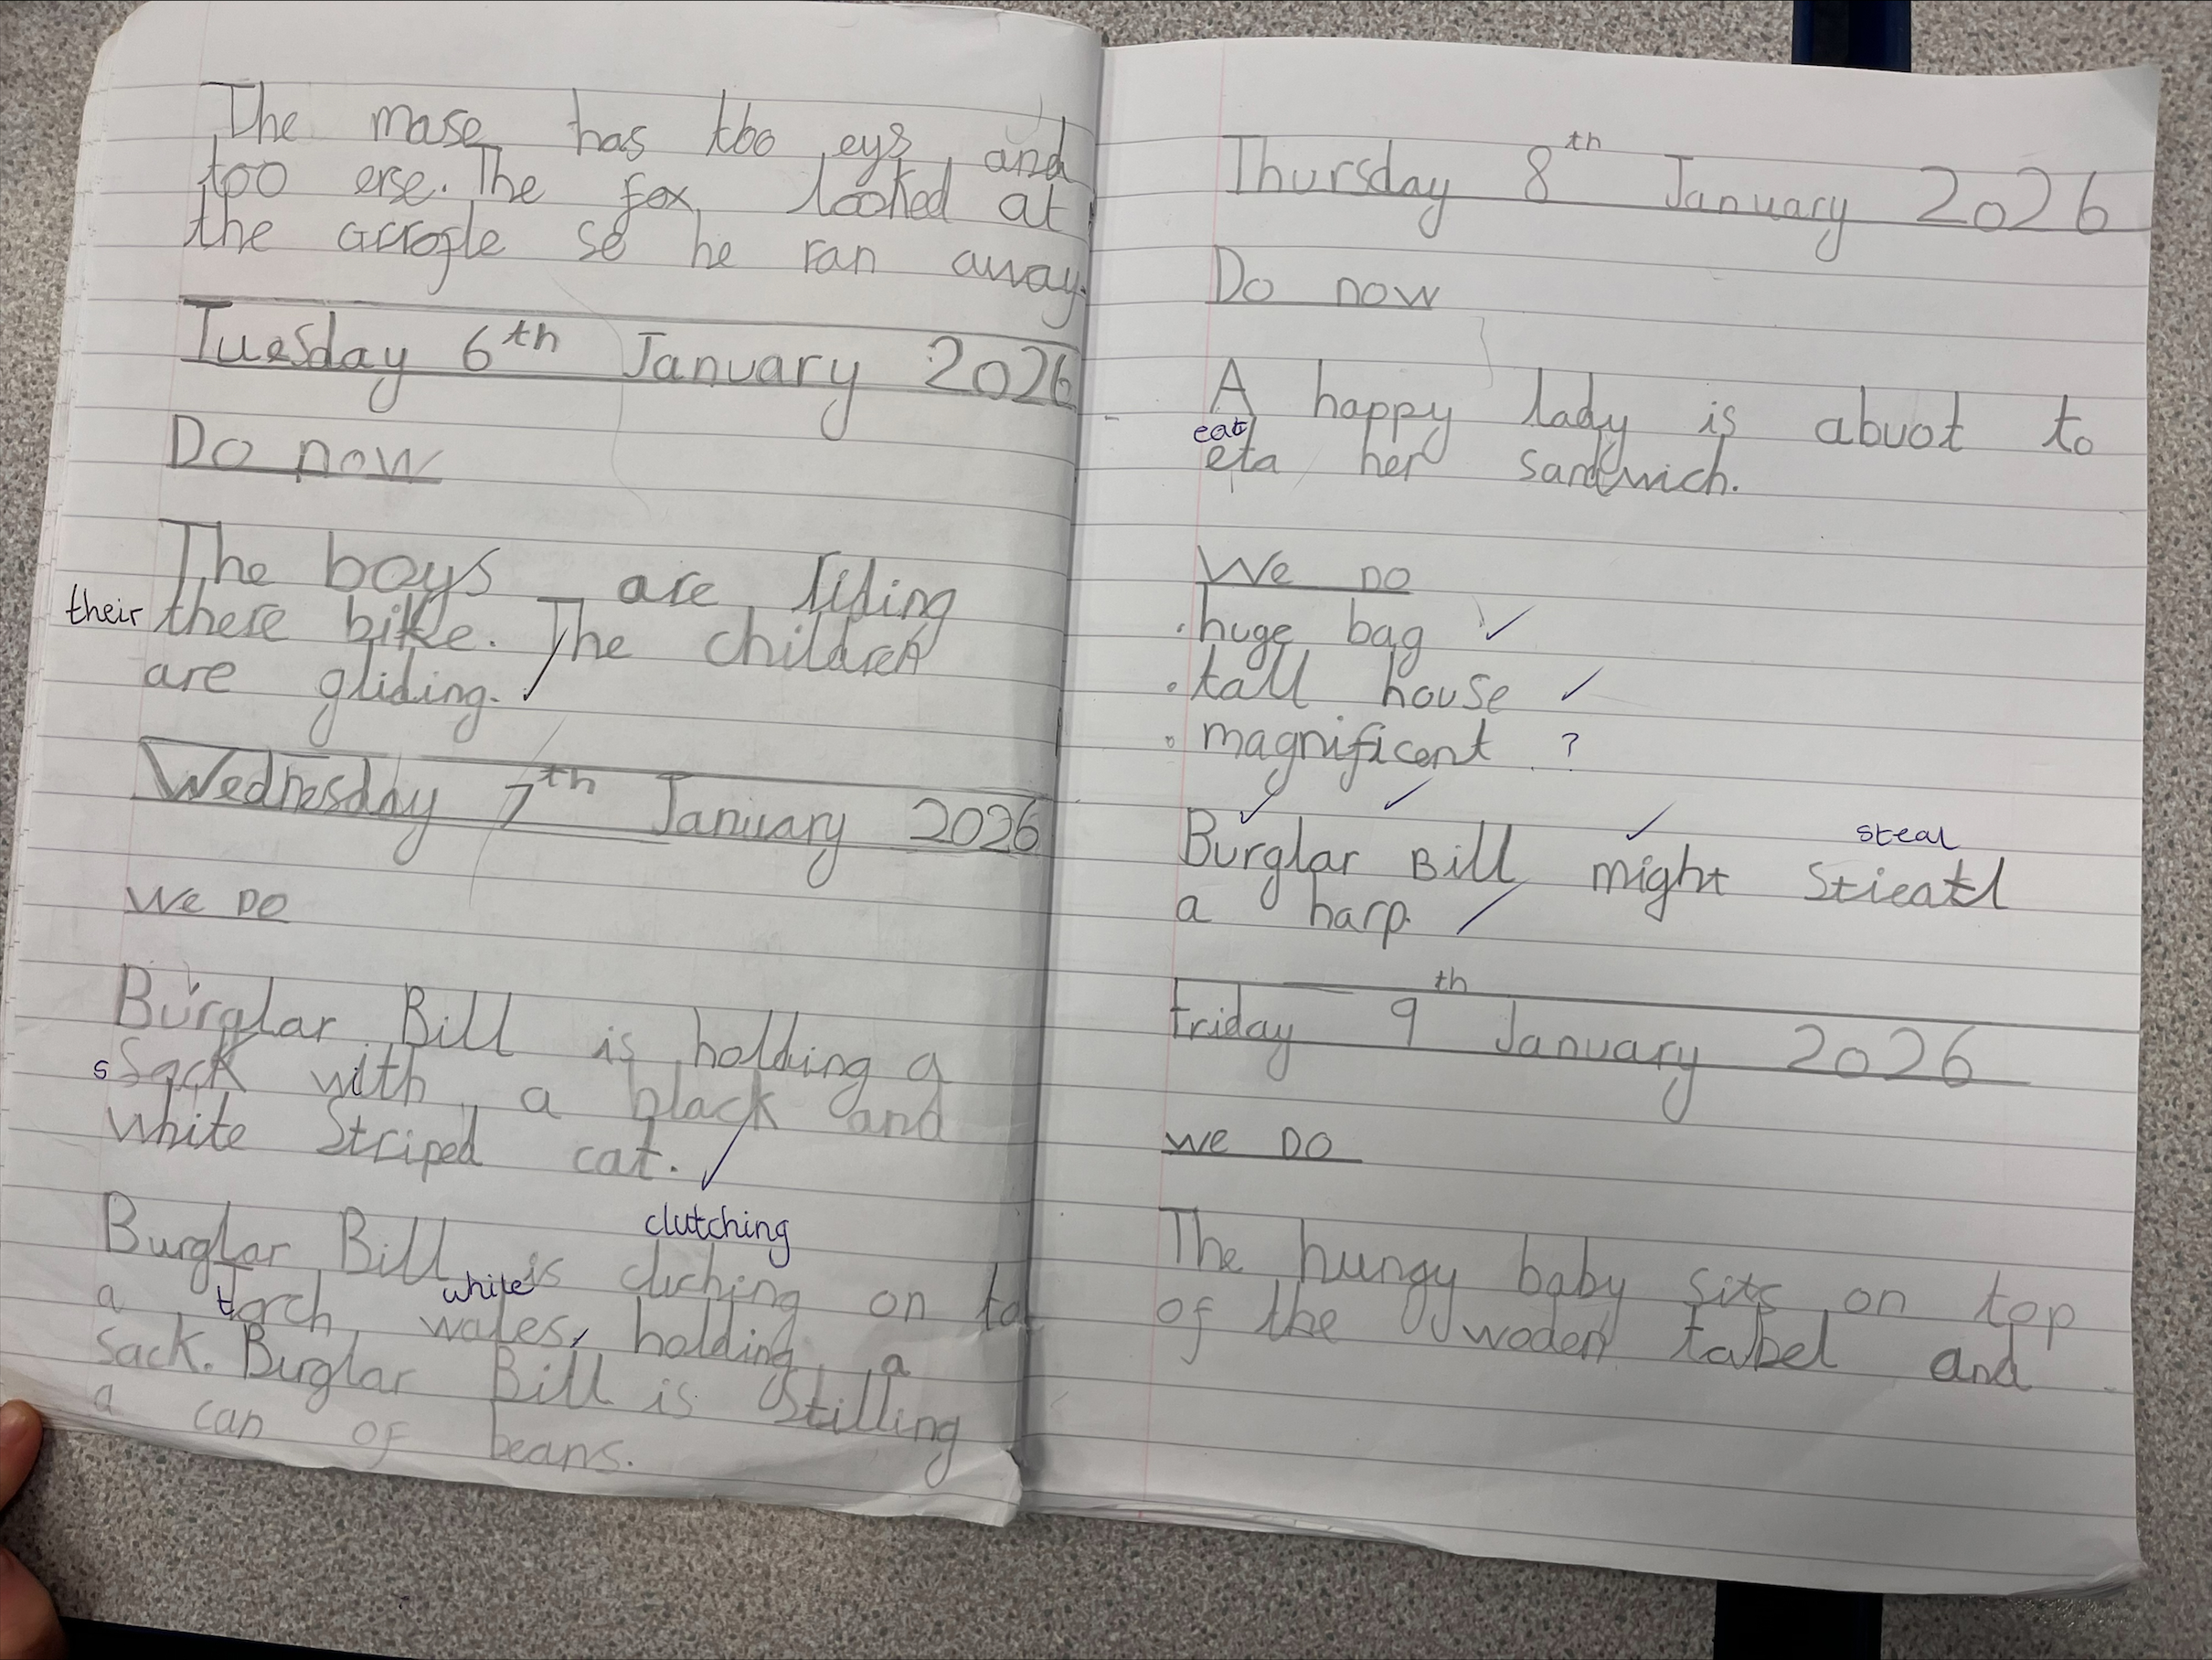 The mase has too eys and
too erse. The fox looked at
the Gcrogle so he ran away.
Tuesday 6th January 2026
Do now
The boys are riding
their there bike. The children
are gliding.
Wednesday 7th January 2026
We Do
Burglar Bill is holding a
s Sack with a black and
white Striped cat.
clutching
Burglar Bill is cluching on to
while
a torch wales, holding a
sack. Burglar Bill is Stilling
a can of beans.
Thursday 8th January 2026
Do now
A happy lady is abuot to
eat
eta her sandwich.
We DO
. huge bag
. tall house
. magnificent ?
steal
Burglar Bill might
a harp.
Friday 9th January 2026
we DO
The hungy baby sits on top
of the woden tabel and